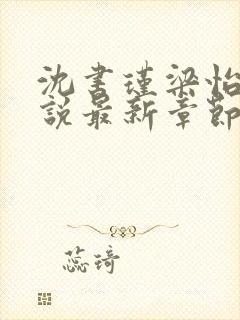 沈書瑾梁怡
說最新章節
蕊琦